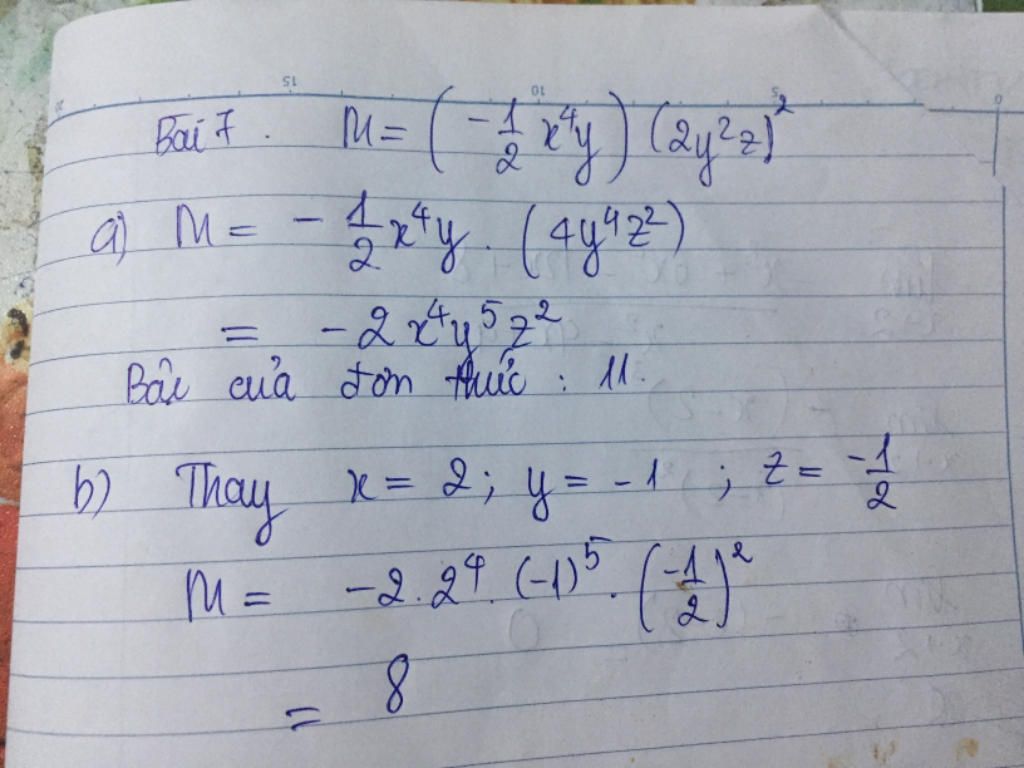 Bài 7. M = (-1/2 x⁴y) (2y²z)²
a) M = - 1/2 x⁴y . (4y⁴z²)
= -2x⁴y⁵z²
Bậc của đơn thức : 11.
b) Thay x = 2; y = -1 ; z = -1/2
M = -2.2⁴.(-1)⁵.(-1/2)²
= 8